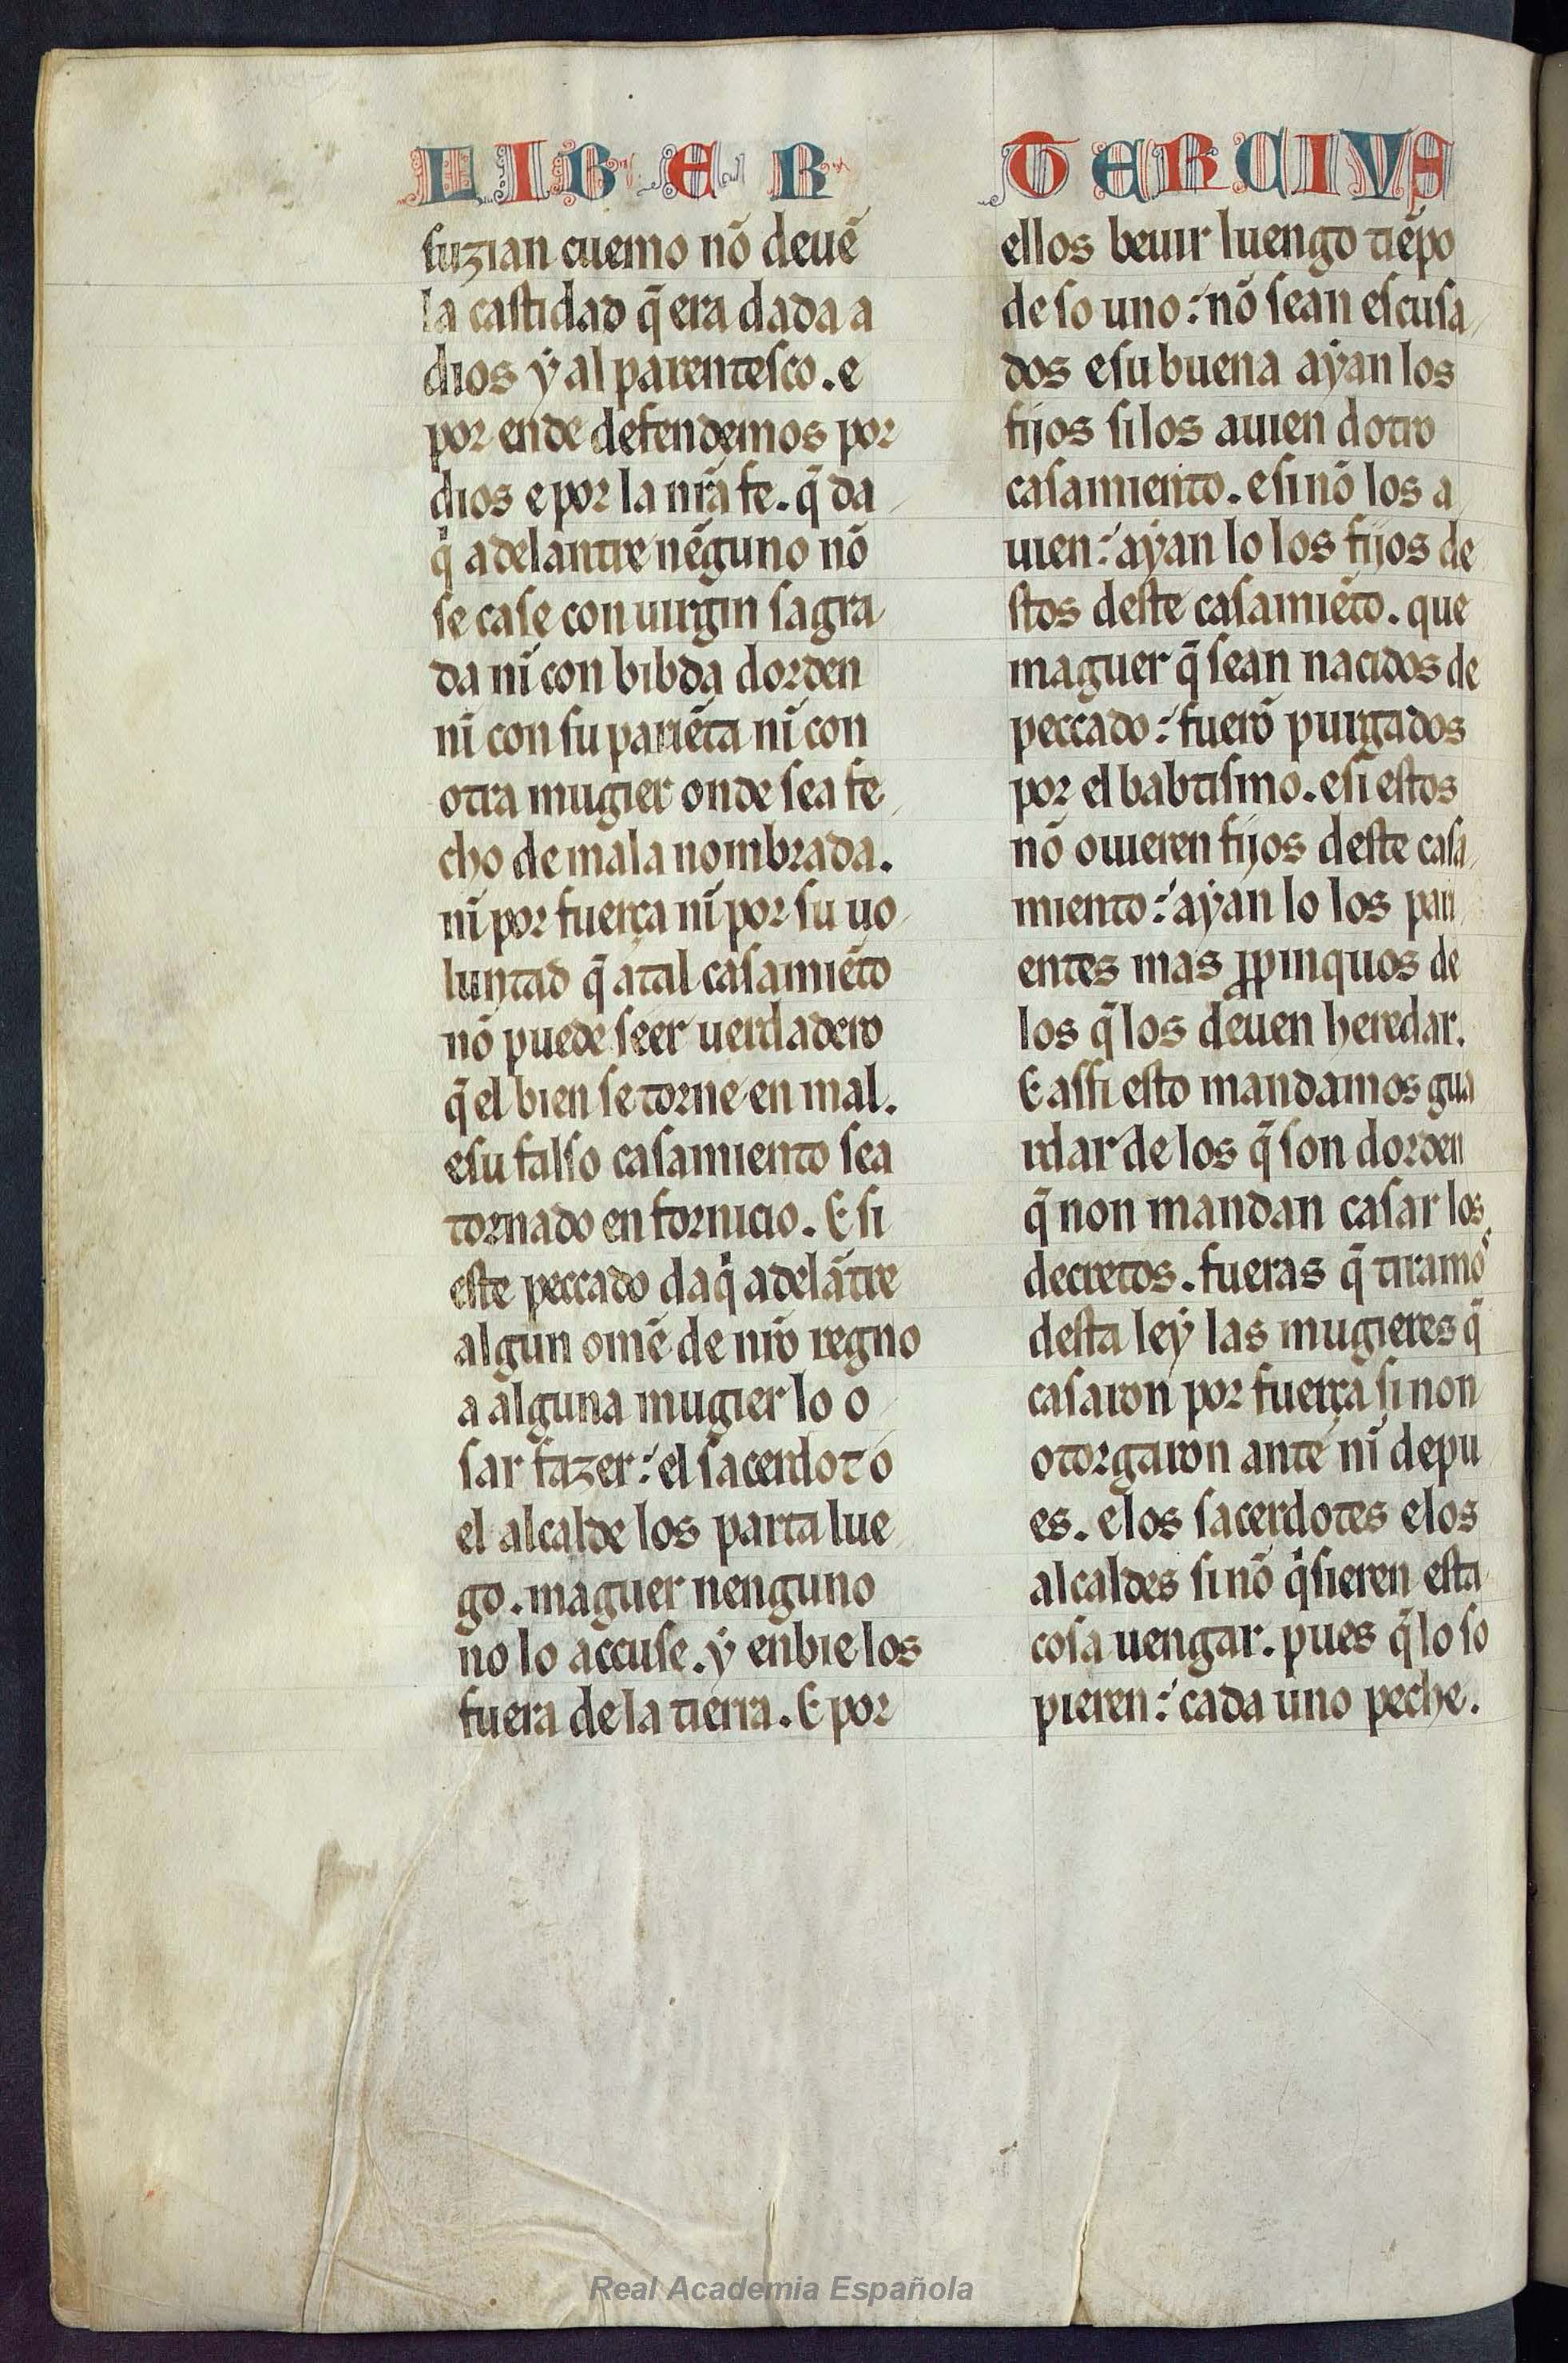 LIBER
suzian cuemo nõ deuẽ
la castidad q̃ era dada a
dios ẏ al parentesco. e
por ende defendemos por
dios e por la nr̃a fe. q̃ da
qͥ adelantre nẽguno nõ
se case con uirgin sagra
da nĩ con bibda dorden
nĩ con su pariẽta nĩ con
otra mugier onde sea fe
cho de mala nombrada.
nĩ por fuerça nĩ por su uo
luntad q̃ atal casamiẽto
nõ puede seer uerdadero
q̃ el bien se torne en mal.
e su falso casamiento sea
tornado en fornicio. E si
este peccado daqͥ adelãtre
algun omẽ de nr̃o regno
a alguna mugier lo o
sar fazer: el sacerdot o
el alcalde los parta lue
go. maguer nenguno
no lo accuse. ẏ enbie los
fuera de la tierra. E por
TERCIVS
ellos beuir luengo tiẽpo
de so uno: nõ sean escusa
dos e su buena aẏan los
fijos si los auien dotro
casamiento. e si nõ los a
uien: aẏan lo los fijos de
stos deste casamiẽto. que
maguer q̃ sean nacidos de
peccado: fuerõ purgados
por el babtismo. e si estos
nõ ouieren fijos deste casa
miento: aẏan lo los pari
entes mas ꝓpinquos de
los q̃ los deuen heredar.
E assi esto mandamos gua
rdar de los q̃ son dorden
q̃ non mandan casar los
decretos. fueras q̃ tiramos
desta leẏ las mugieres q̃
casaron por fuerça si non
otorgaron ante nĩ depu
es. e los sacerdotes e los
alcaldes si nõ qͥsieren esta
cosa uengar. pues q̃ lo so
pieren: cada uno peche.
Real Academia Española